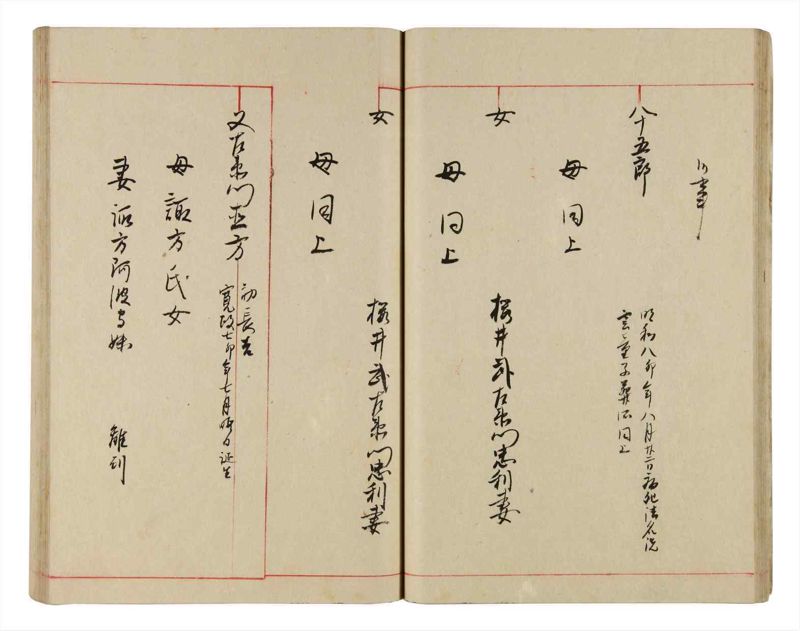 八十五郎
母同上
明和八卯年八月廿二日病死法名洗
雲童子葬所同上
女
母同上
桜井武左衛門忠利妻
女
母同上
桜井武左衛門忠利妻
又左衛門正方
初長吉
寛政七卯年七月 日誕生
母諏方氏女
妻諏方阿波守妹
離別